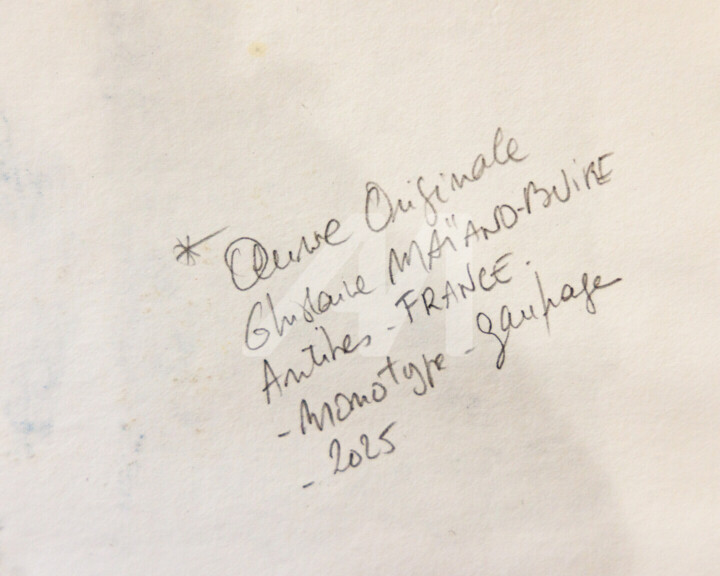 * Œuvre Originale
Ghislaine MAÏANO-BUIRE
Antibes - FRANCE.
- monotype - gaufrage
- 2025